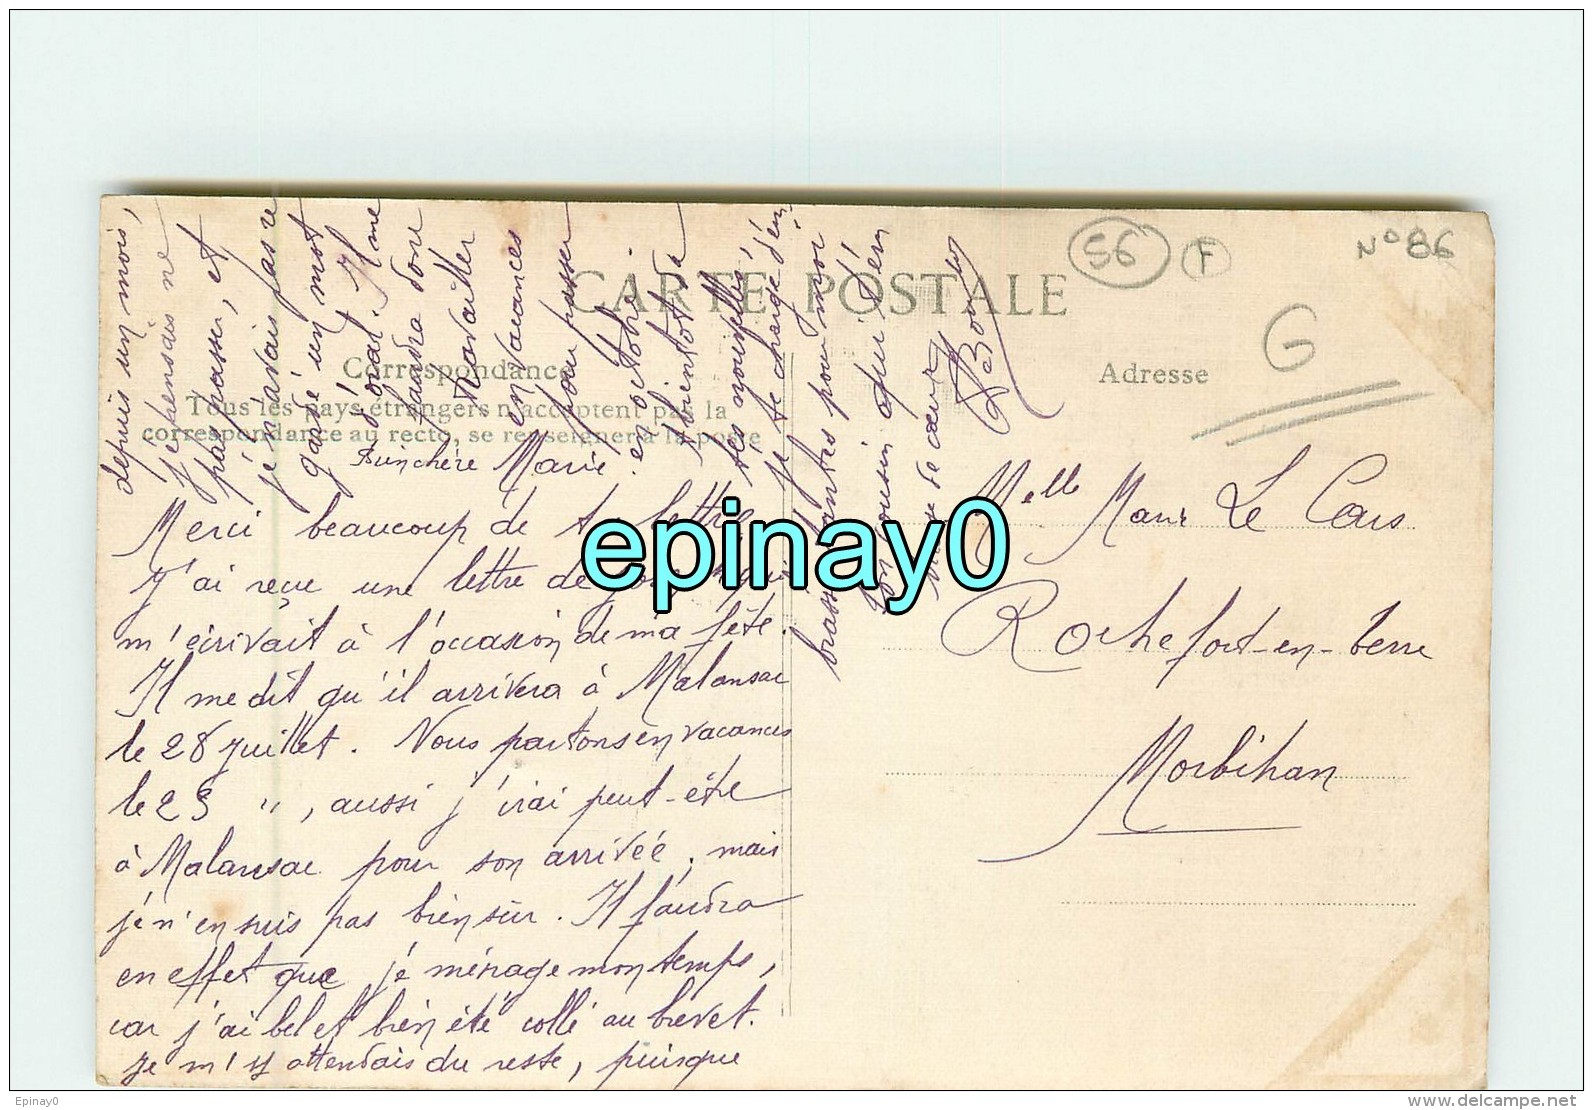 CARTE POSTALE
Correspondance
Adresse
Tous les pays étrangers n'acceptent pas la
correspondance au recto, se renseigner à la poste
56
F
N° 86
G
Marie
Merci beaucoup de ta lettre
J'ai reçue une lettre de qui
m'écrivait à l'occasion de ma fête.
Il me dit qu'il arrivera à Malansac
le 28 juillet. Nous partons en vacances
le 23 ", aussi j'irai peut-être
à Malansac pour son arrivée, mais
je n'en suis pas bien sûr. Il faudra
en effet que je ménage mon temps,
car j'ai bel et bien été collé au brevet.
Je m'y attendais du reste, puisque
depuis un mois,
je pensais ne
pas passer, et
je n'avais pas re
gardé un mot
d'oral. Il me
faudra donc
travailler
en vacances
pour passer
en octobre.
A bientôt de
tes nouvelles
je te charge d'em
brasser tantes pour moi
Ton cousin qui t'em
brasse de cœur
Melle Marie Le Cars
Rochefort-en-terre
Morbihan
epinay0
Epinay0
delcampe.net